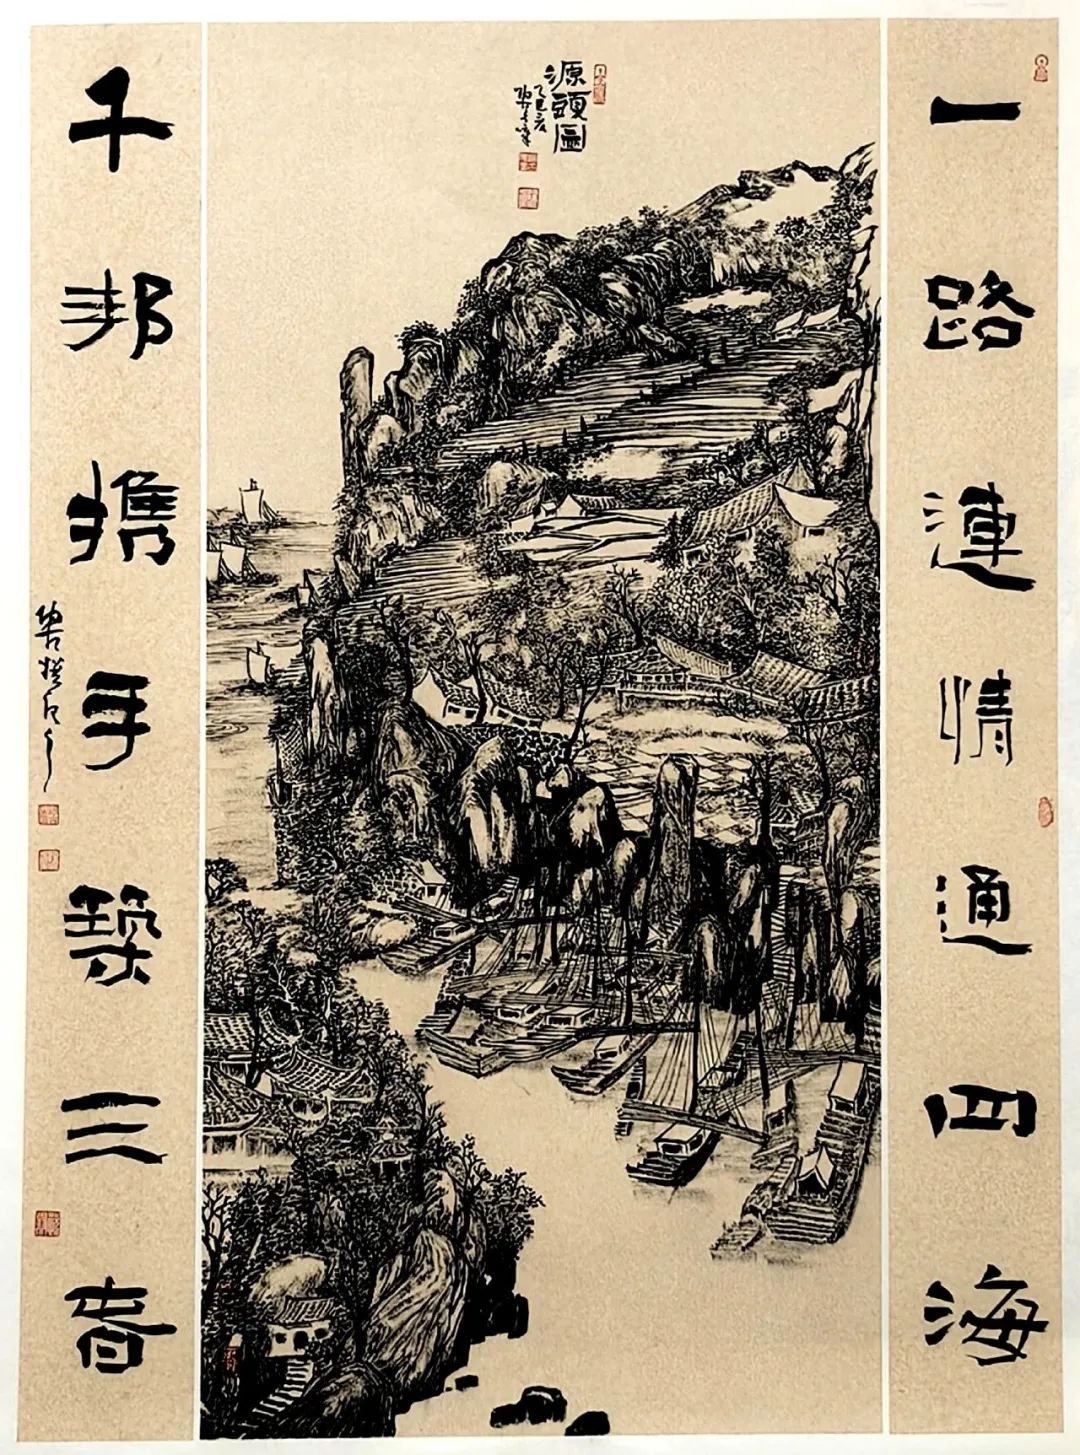 一路連情通四海
源頭圖
乙巳
千邦携手築三春